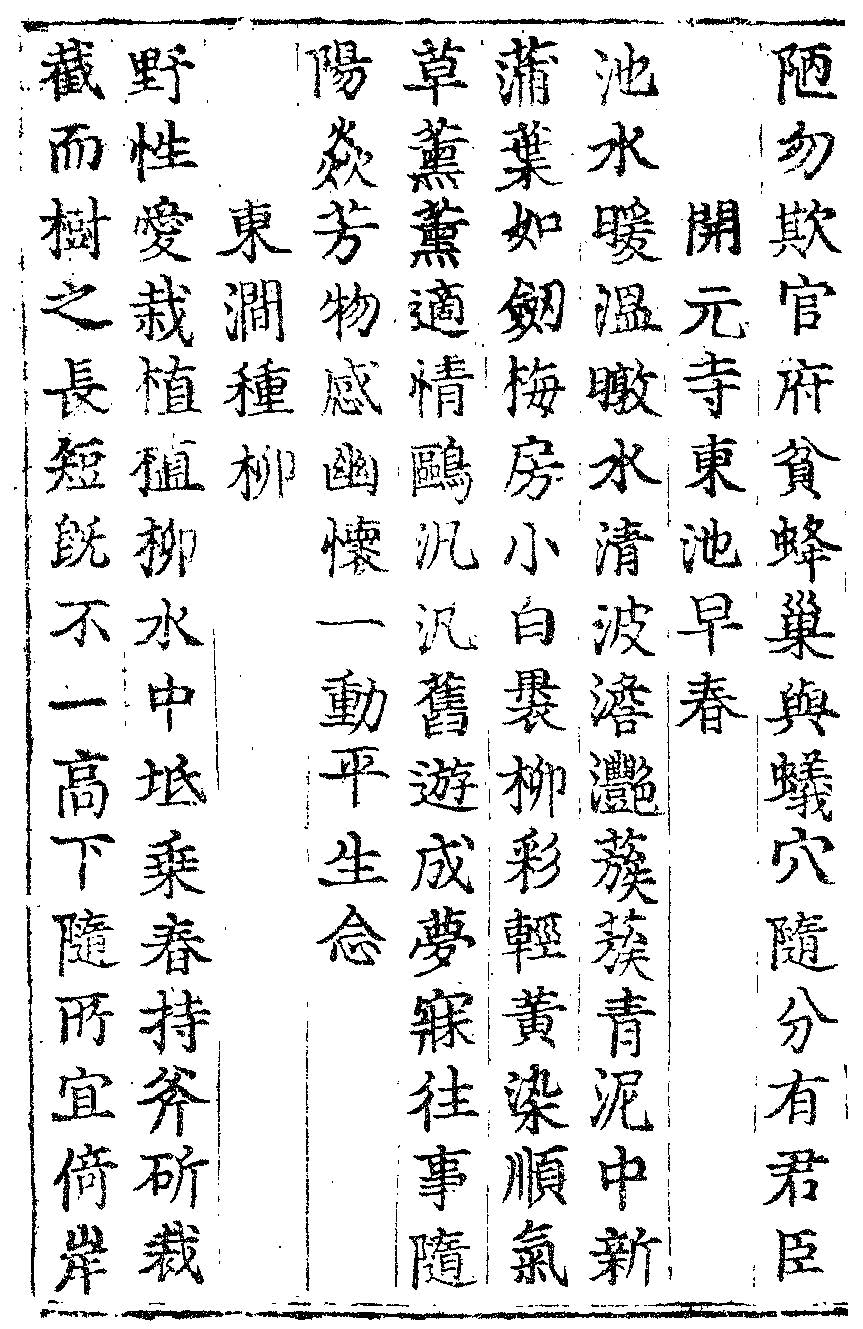 陋勿欺官府貧蜂巢與蟻穴隨分有君臣
開元寺東池早春
池水暖溫暾水清波澹灩蔟蔟青泥中新
蒲葉如劒梅房小白褁柳彩輕黃染順氣
草薰薰適情鷗汎汎舊遊成夢寐往事隨
陽焱芳物感幽懷一動平生念
東澗種柳
野性愛栽植植柳水中坻乗春持斧斫裁
截而樹之長短旣不一高下隨所宜倚岸